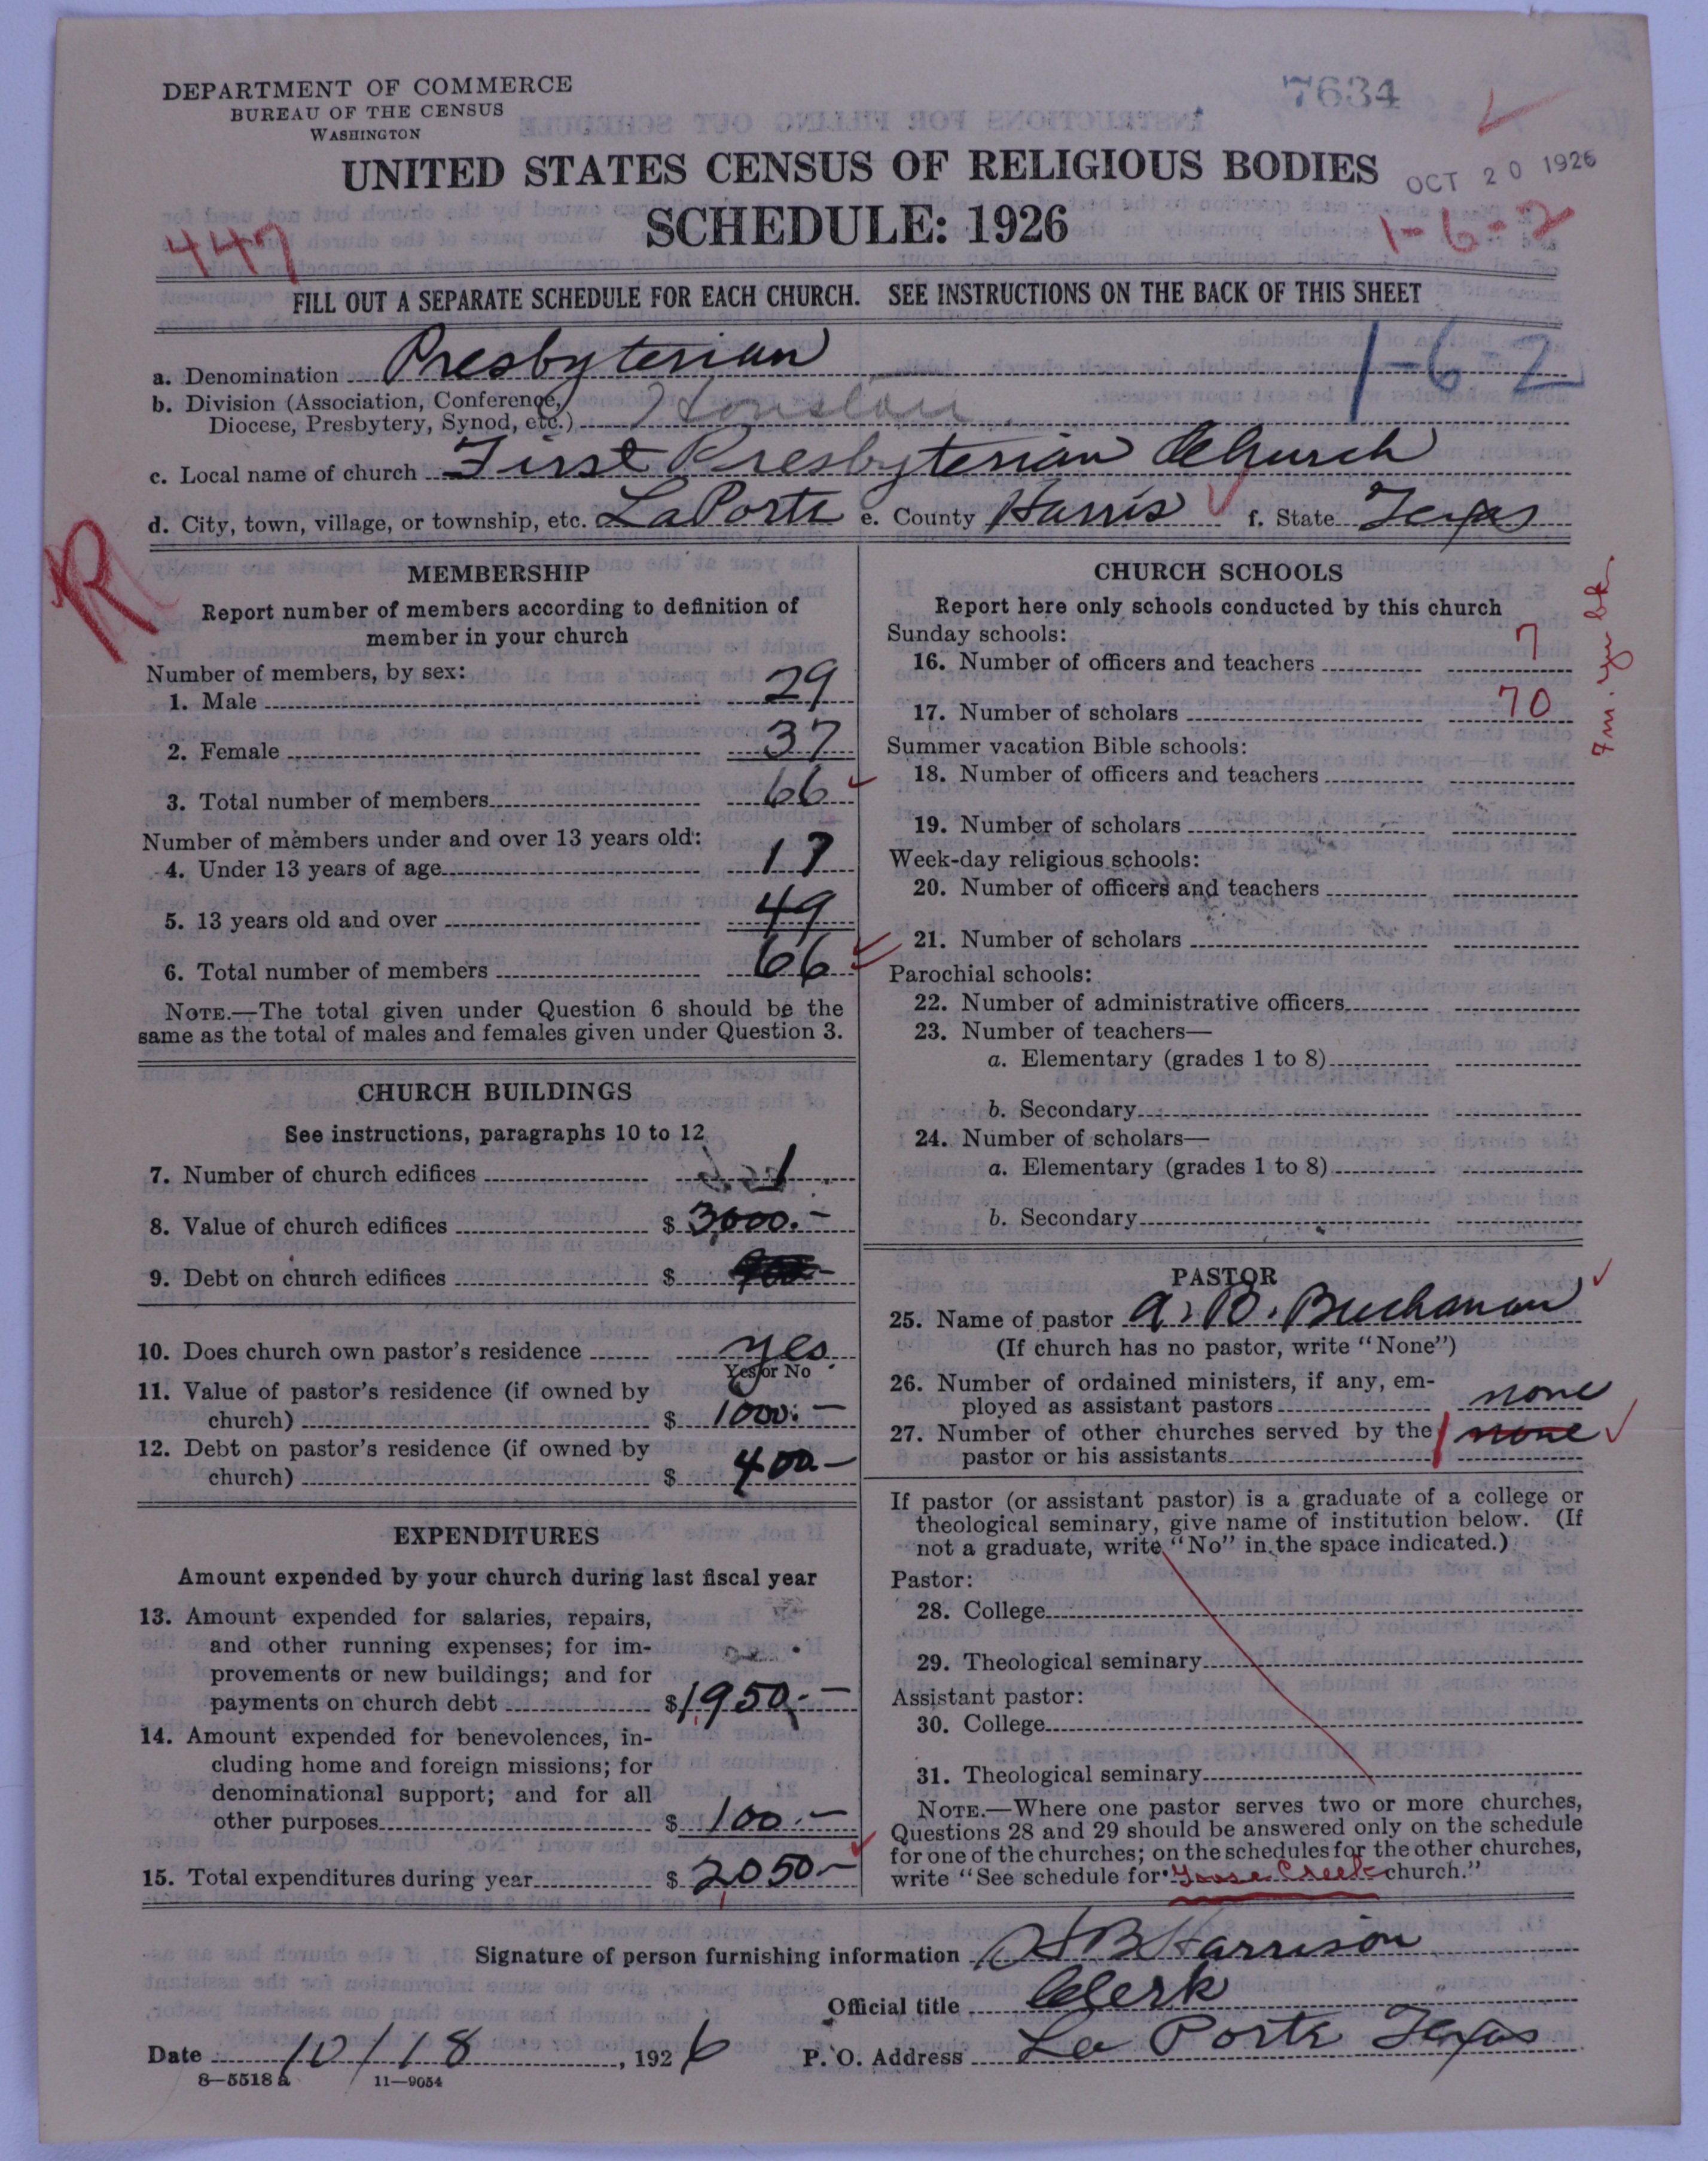 DEPARTMENT OF COMMERCE
BUREAU OF THE CENSUS
WASHINGTON
7634
UNITED STATES CENSUS OF RELIGIOUS BODIES
OCT 20 1926
SCHEDULE: 1926
447
1-6-2
FILL OUT A SEPARATE SCHEDULE FOR EACH CHURCH. SEE INSTRUCTIONS ON THE BACK OF THIS SHEET
a. Denomination Presbyterian
1-6 2
b. Division (Association, Conference,
Diocese, Presbytery, Synod, etc.) Houston
c. Local name of church First Presbyterian Church
d. City, town, village, or township, etc. La Porte e. County Harris f. State Texas
R
MEMBERSHIP
Report number of members according to definition of
member in your church
Number of members, by sex:
1. Male 29
2. Female 37
3. Total number of members 66
Number of members under and over 13 years old:
4. Under 13 years of age 17
5. 13 years old and over 49
6. Total number of members 66
NOTE.—The total given under Question 6 should be the
same as the total of males and females given under Question 3.
CHURCH BUILDINGS
See instructions, paragraphs 10 to 12
7. Number of church edifices 1
8. Value of church edifices $ 3000.-
9. Debt on church edifices $
10. Does church own pastor's residence yes
Yes or No
11. Value of pastor's residence (if owned by
church) $ 1000.-
12. Debt on pastor's residence (if owned by
church) $ 400.-
EXPENDITURES
Amount expended by your church during last fiscal year
13. Amount expended for salaries, repairs,
and other running expenses; for im-
provements or new buildings; and for
payments on church debt $ 1950.-
14. Amount expended for benevolences, in-
cluding home and foreign missions; for
denominational support; and for all
other purposes $ 100.-
15. Total expenditures during year $ 2050-
CHURCH SCHOOLS
Report here only schools conducted by this church
Sunday schools:
16. Number of officers and teachers 7
17. Number of scholars 70
Summer vacation Bible schools:
18. Number of officers and teachers
19. Number of scholars
Week-day religious schools:
20. Number of officers and teachers
21. Number of scholars
Parochial schools:
22. Number of administrative officers
23. Number of teachers—
a. Elementary (grades 1 to 8)
b. Secondary
24. Number of scholars—
a. Elementary (grades 1 to 8)
b. Secondary
PASTOR
25. Name of pastor A. B. Buchanan
(If church has no pastor, write "None")
26. Number of ordained ministers, if any, em-
ployed as assistant pastors none
27. Number of other churches served by the
pastor or his assistants 1 none
If pastor (or assistant pastor) is a graduate of a college or
theological seminary, give name of institution below. (If
not a graduate, write "No" in the space indicated.)
Pastor:
28. College
29. Theological seminary
Assistant pastor:
30. College
31. Theological seminary
NOTE.—Where one pastor serves two or more churches,
Questions 28 and 29 should be answered only on the schedule
for one of the churches; on the schedules for the other churches,
write "See schedule for Goose Creek church."
Signature of person furnishing information H B Harrison
Official title Clerk
Date 10/18, 1926 P. O. Address La Porte Texas
8—5518 a 11—9054